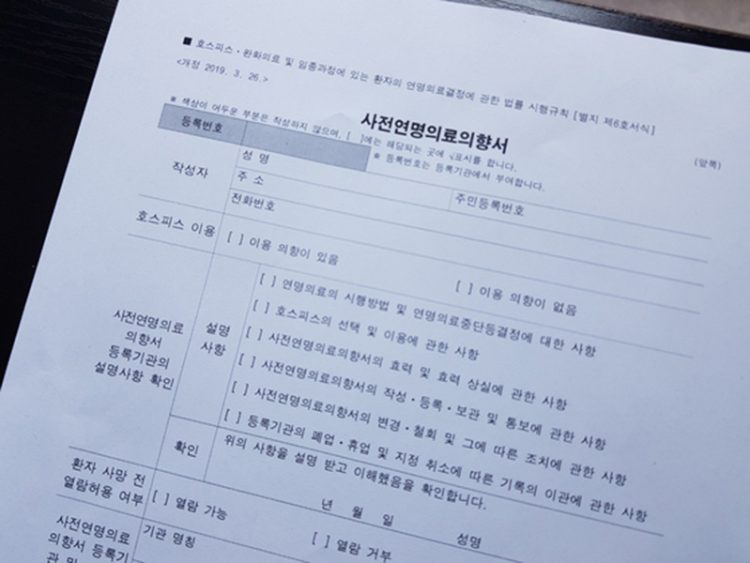 ■ 호스피스·완화의료 및 임종과정에 있는 환자의 연명의료결정에 관한 법률 시행규칙 [별지 제6호서식]
<개정 2019. 3. 26.>
사전연명의료의향서
(앞쪽)
※ 색상이 어두운 부분은 작성하지 않으며, [ ]에는 해당되는 곳에 √표시를 합니다.
등록번호
※ 등록번호는 등록기관에서 부여합니다.
작성자
성 명
주민등록번호
주 소
전화번호
호스피스 이용
[ ] 이용 의향이 있음
[ ] 이용 의향이 없음
사전연명의료
의향서
등록기관의
설명사항 확인
설명
사항
[ ] 연명의료의 시행방법 및 연명의료중단등결정에 대한 사항
[ ] 호스피스의 선택 및 이용에 관한 사항
[ ] 사전연명의료의향서의 효력 및 효력 상실에 관한 사항
[ ] 사전연명의료의향서의 작성·등록·보관 및 통보에 관한 사항
[ ] 사전연명의료의향서의 변경·철회 및 그에 따른 조치에 관한 사항
[ ] 등록기관의 폐업·휴업 및 지정 취소에 따른 기록의 이관에 관한 사항
확인
위의 사항을 설명 받고 이해했음을 확인합니다.
년 월 일 성명
환자 사망 전
열람허용 여부
[ ] 열람 가능
[ ] 열람 거부
사전연명의료
의향서 등록기
관 및
기관 명칭